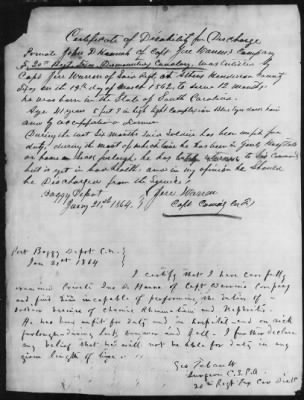 Certificate of Disability for Discharge
Private John D Hannah of Capt Jere Warren's Company
20th Regt Dismounted Cavalry, was enlisted by
Capt Jere Warren of Said Regt at Athens Henderson County
Texas on the 19th day of March 1862, to serve 12 months
he was born in the State of South Carolina
Age years feet in high light complexion blue eyes
and by occupation a Farmer
During the last six months said soldier has been unfit for
duty, during the most of which time he has been in Genl Hospitals
or home on
but is yet in bad health, and in my opinion he should
be Discharged from the Service
Boggy Depot
Jany 21st 1864
Jere Warren
Capt Comdg
Fort Boggy Depot C.N.
Jan 21st 1864
I certify that I have carefully
examined Private Hannah of Capt Warren's Company
and find him incapable of performing the duties of a
soldier because of chronic Rheumatism and Nephritis
He has been unfit for duty and in hospital and on sick
furlough during last summer and fall. I further declare
my belief that he will not be able for duty in any
given length of time
Geo
Surgeon C.S.P.A.
20th Regt Tex Cav Dist